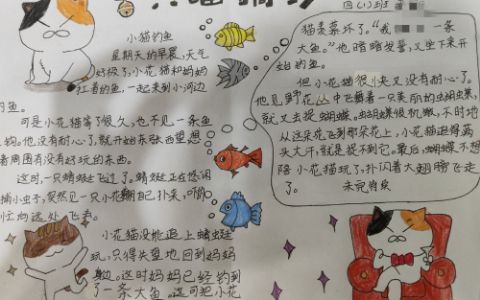 小猫钓鱼
星期天的早晨，天气
好极了，小花猫和妈妈
扛着钓鱼，一起来到小河边
钓鱼。
可是小花猫等了很久，也不见一条鱼
上钩。他没有耐心了，就开始东张西望想
看周围有没有好玩的东西。
这时，一只蜻蜓飞过了。蜻蜓正在悠闲
捕小虫子，突然见一只小花猫朝自己扑来，吓
忙向远处飞走。
小花猫没能追上蜻蜓
玩，只得失望地回到妈妈
身边。这时妈妈已经钓到
了一条大鱼。这可把小花
四(1)班
猫羡慕坏了。“我
一条
大鱼。”他暗暗发誓，又坐下来开
始钓鱼。
但小花猫很快又没有耐心了。
他见野花丛中飞舞着一只美丽的蝴蝶，
就又去捉蝴蝶。蝴蝶很机敏，不时地
从这朵花飞到那朵花上，小花猫追得满
头大汗，就是捉不到它。最后，蝴蝶不想
陪小花猫玩了，扑闪着大翅膀飞走
了
未完待续